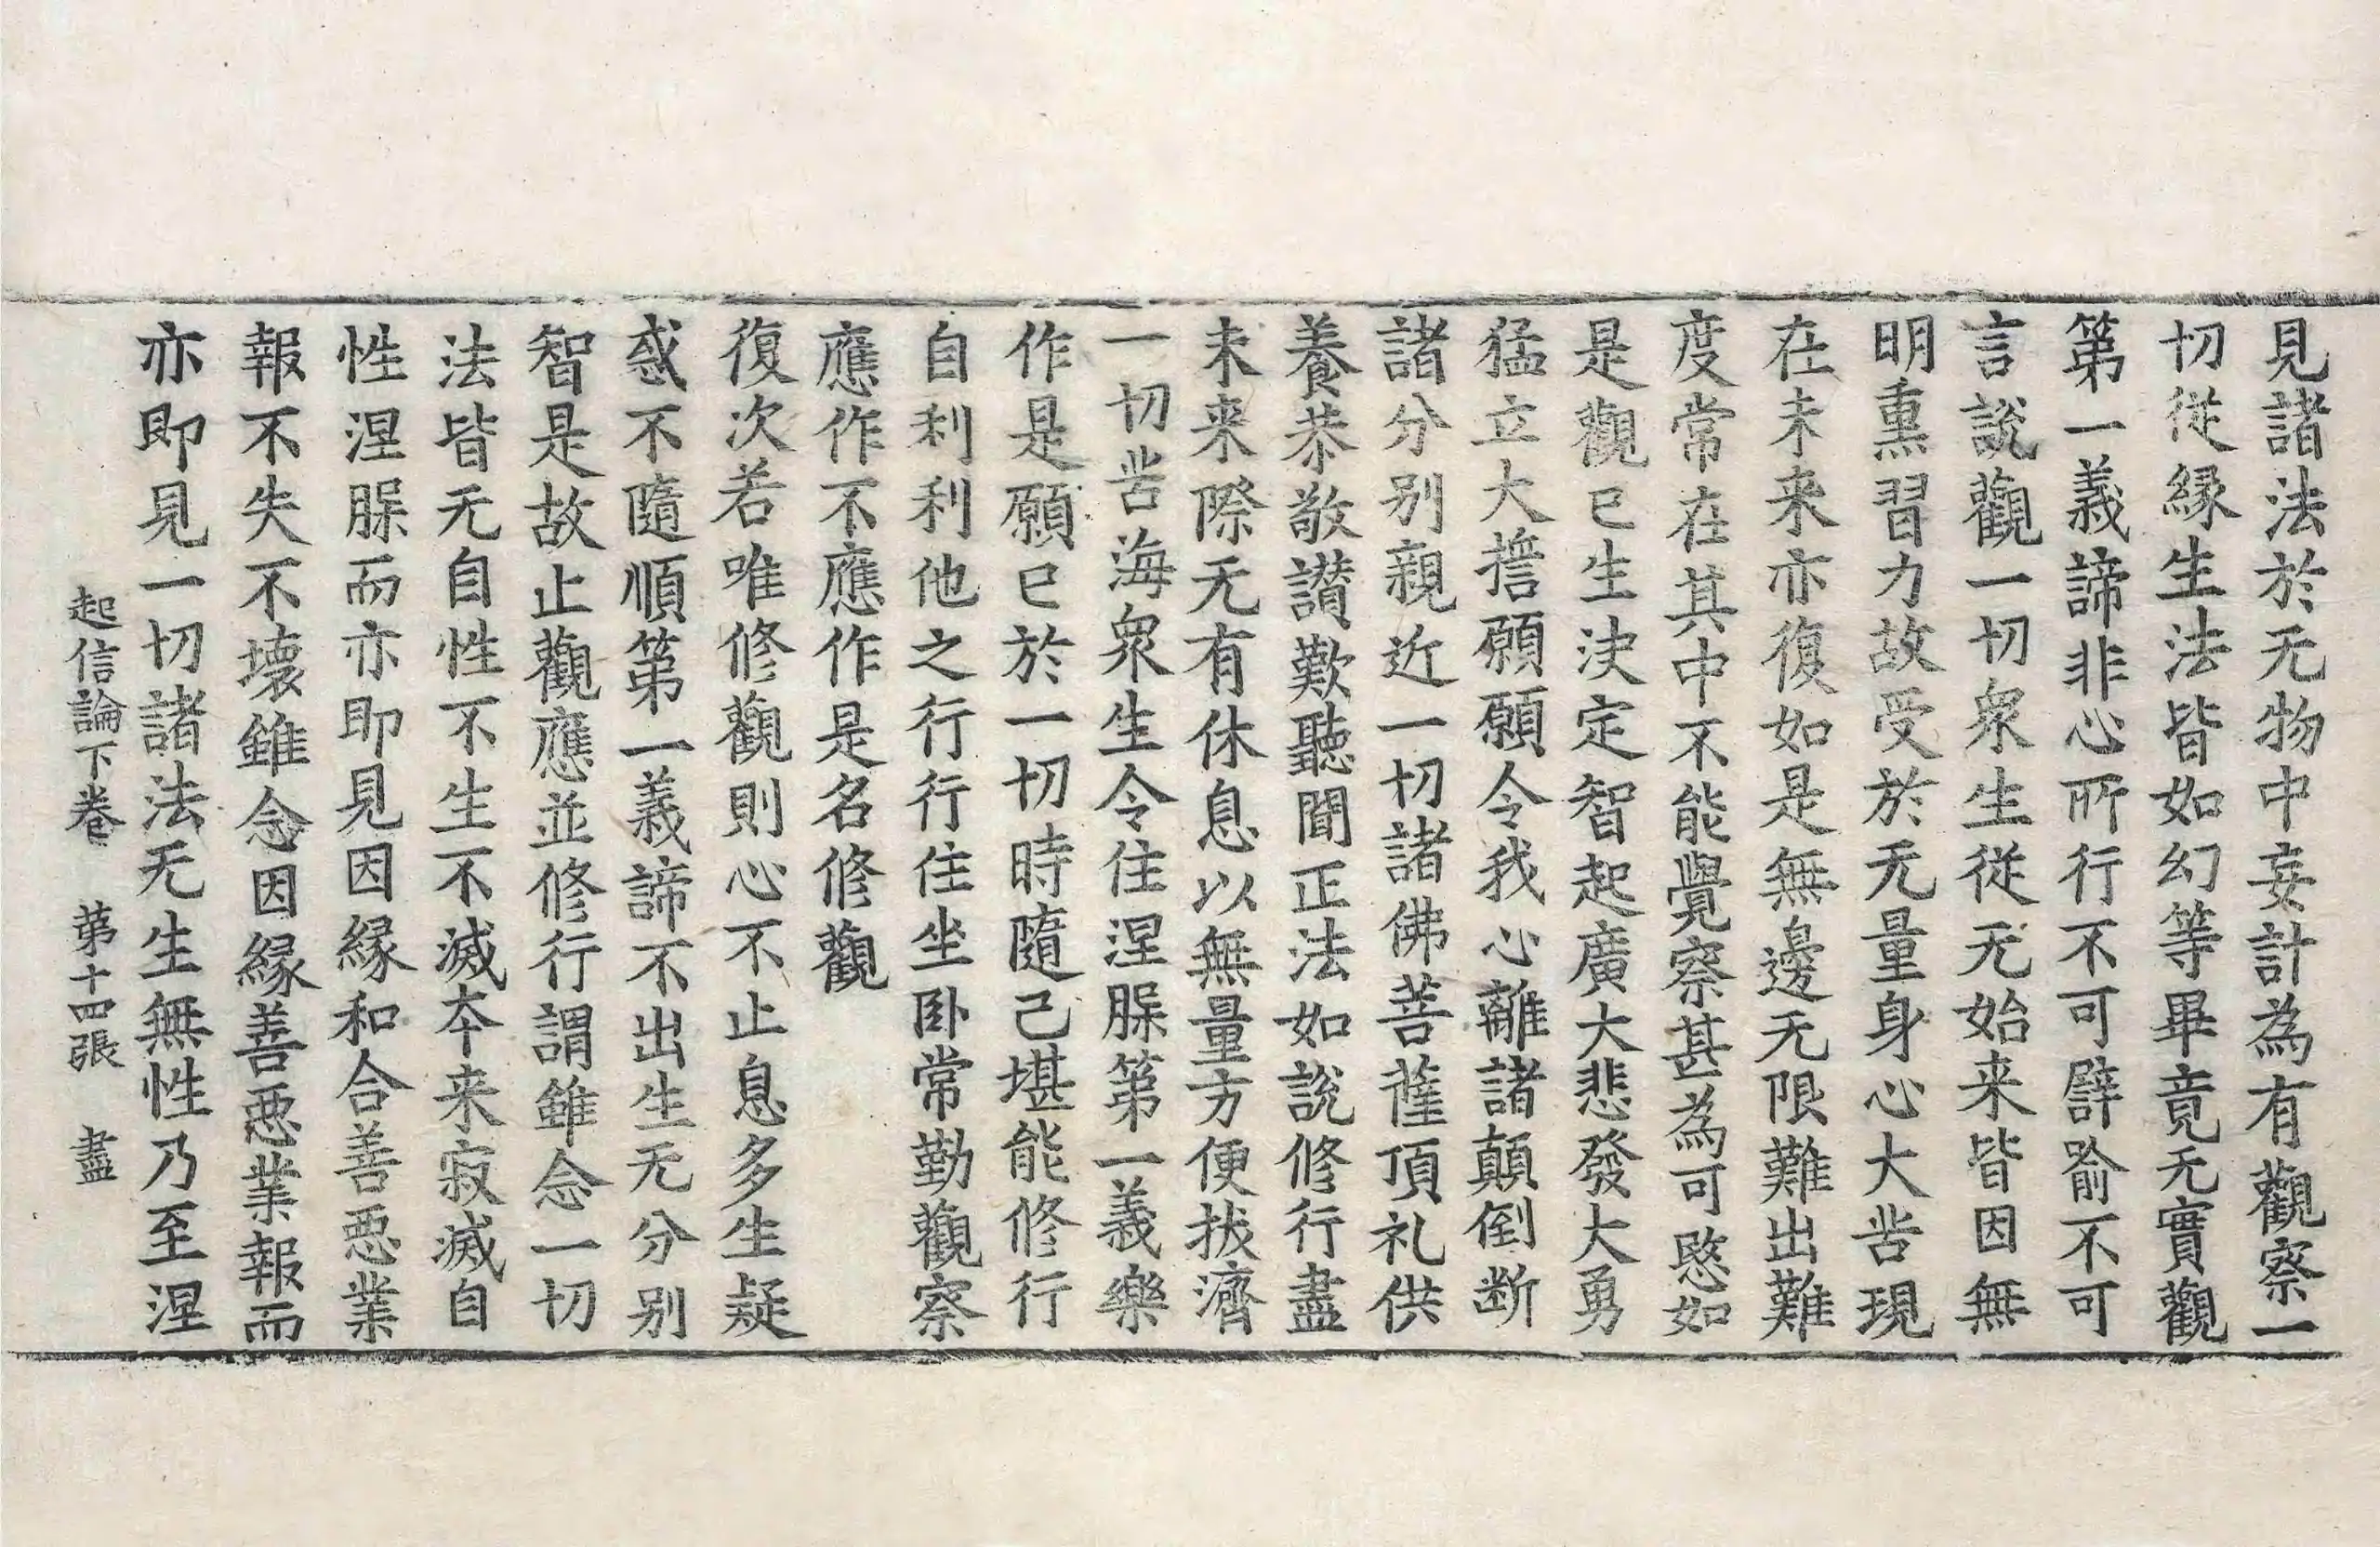 見諸法於无物中妄計為有觀察一
切從緣生法皆如幻等畢竟无實觀
第一義諦非心所行不可譬喻不可
言說觀一切眾生從无始来皆因無
明熏習力故受於无量身心大苦現
在未来亦復如是無邊无限難出難
度常在其中不能覺察甚為可愍如
是觀已生決定智起廣大悲發大勇
猛立大誓願願令我心離諸顛倒断
諸分別親近一切諸佛菩薩頂礼供
養恭敬讃歎聽聞正法如說修行盡
未来際无有休息以無量方便拔濟
一切苦海眾生令住涅槃第一義樂
作是願已於一切時隨己堪能修行
自利利他之行行住坐卧常勤觀察
應作不應作是名修觀
復次若唯修觀則心不止息多生疑
惑不隨順第一義諦不出生无分別
智是故止觀應並修行謂雖念一切
法皆无自性不生不滅本来寂滅自
性涅槃而亦即見因緣和合善惡業
報不失不壞雖念因緣善惡業報而
亦即見一切諸法无生無性乃至涅
起信論下卷　第十四張　盡